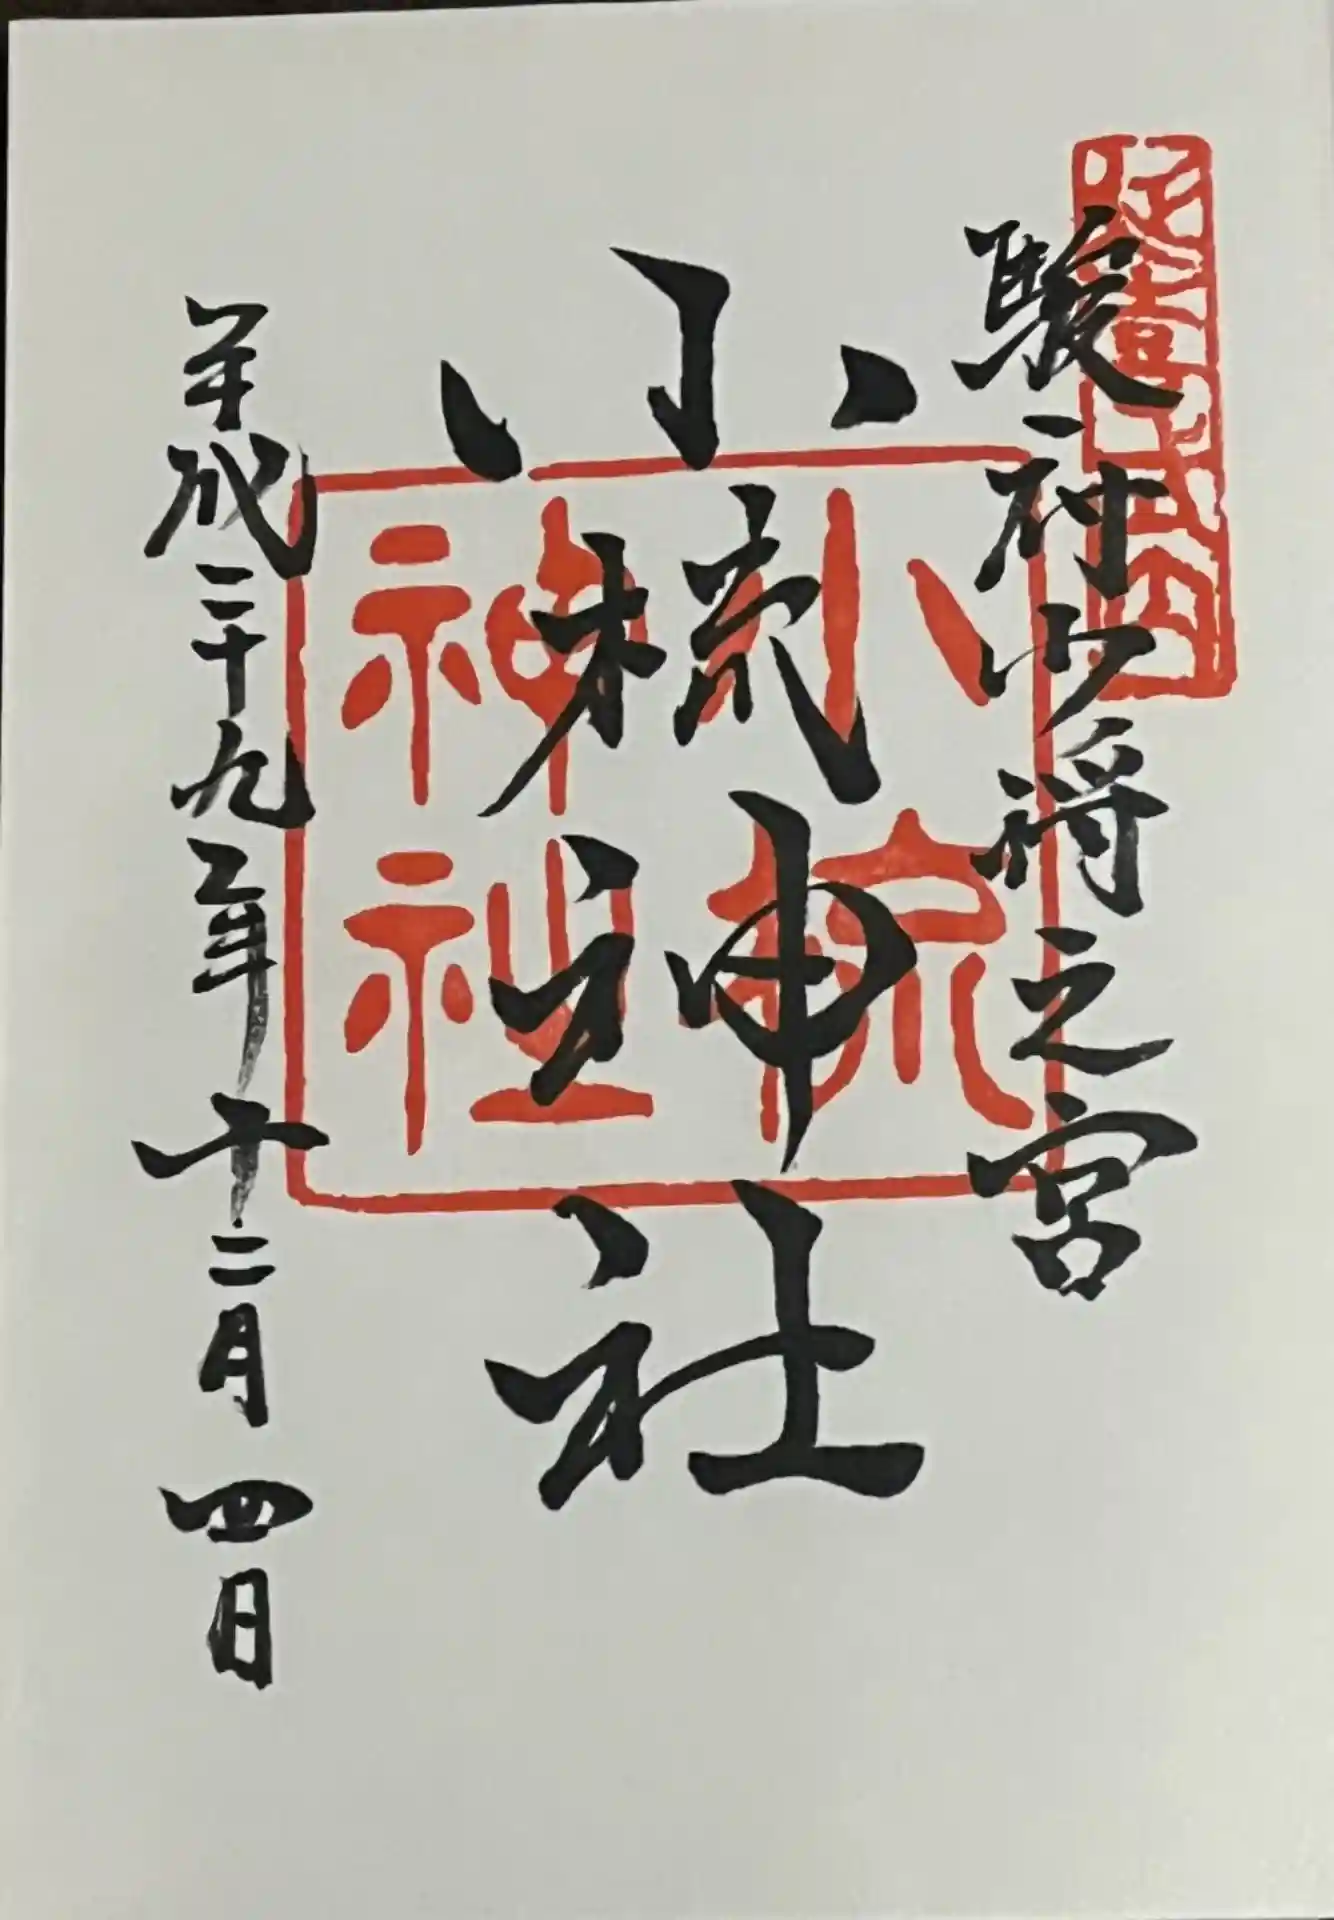 延喜式内
駿府少将之宮
小梳神社
小梳神社
平成二十九年十二月四日